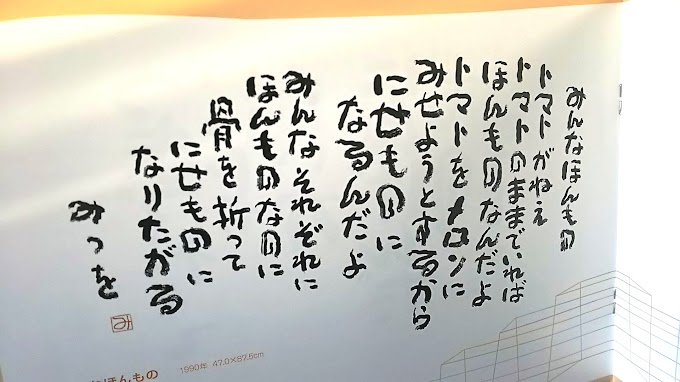 みんなほんもの
トマトがねえ
トマトのままでいれば
ほんものなんだよ
トマトをメロンに
みせようとするから
にせものに
なるんだよ
みんなそれぞれに
ほんものなのに
骨を折って
にせものに
なりたがる
みつを
み
なほんもの
1990年 47.0×87.5cm